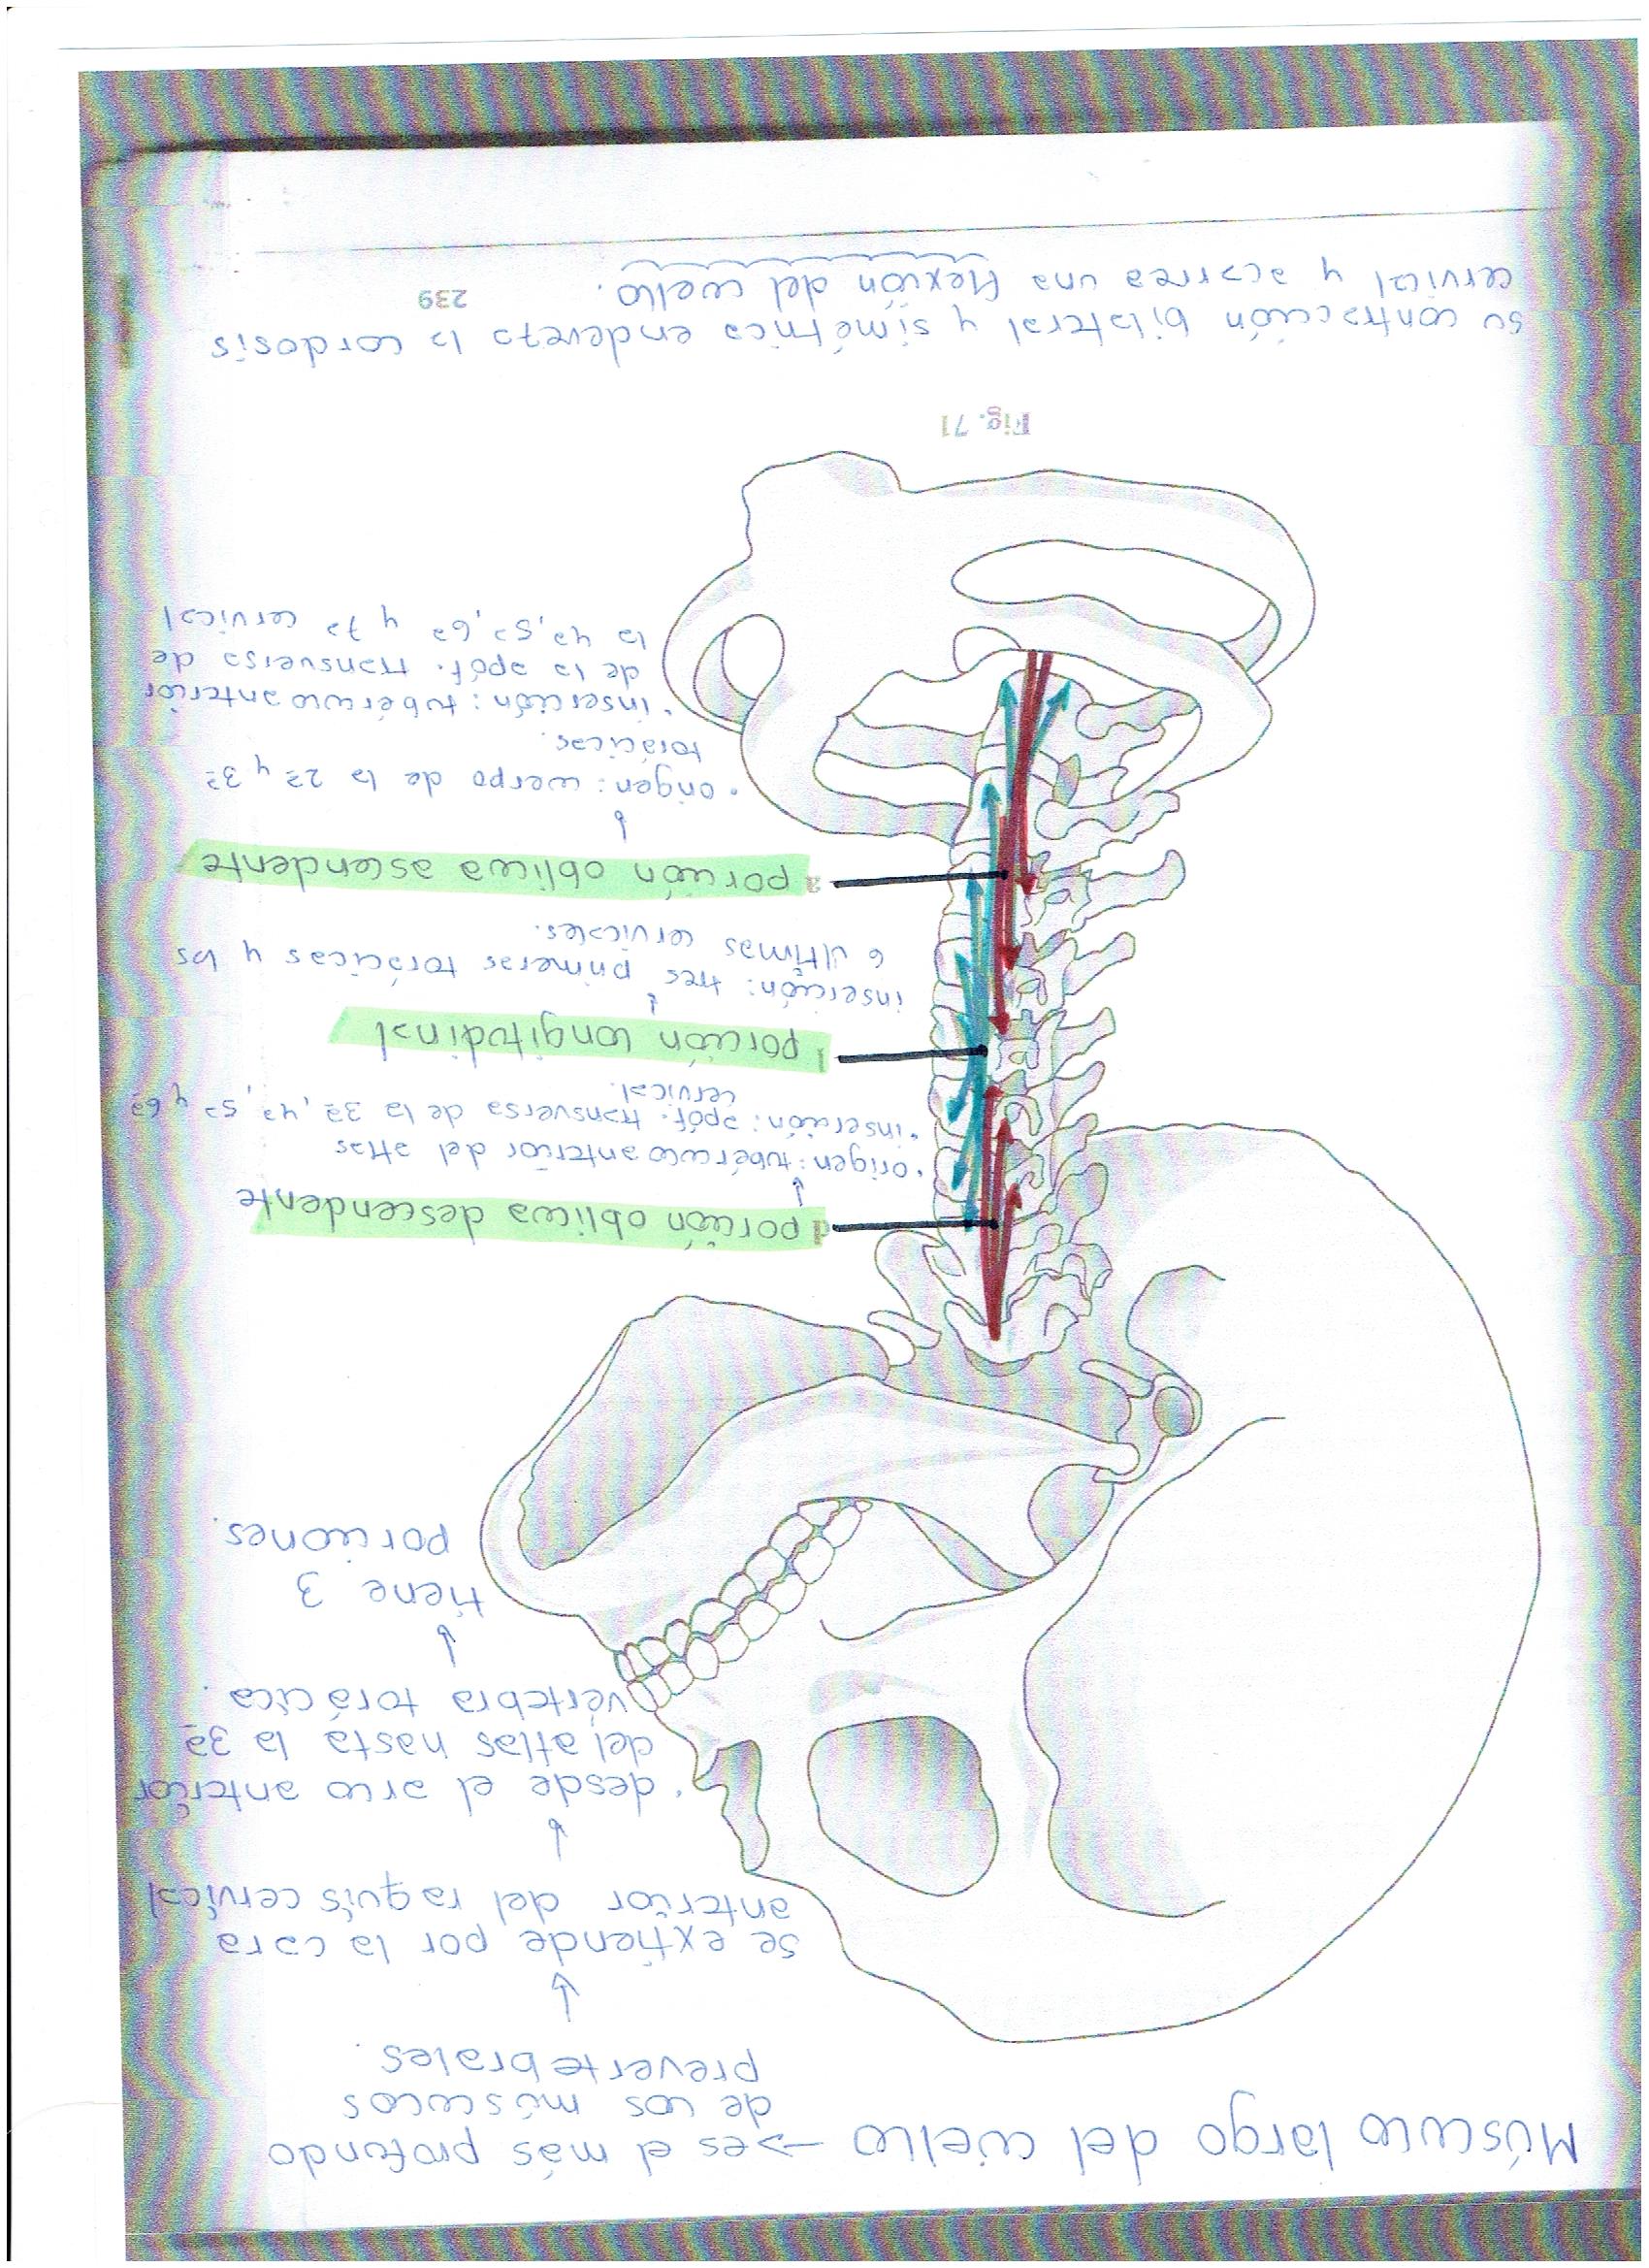 Músculo largo del cuello → es el más profundo
de los músculos
prevertebrales.
se extiende por la cara
anterior del raquis cervical
· desde el arco anterior
del atlas hasta la 3ª
vértebra torácica.
tiene 3
porciones.
d porción oblicua descendente
· origen: tubérculo anterior del atlas
· inserción: apóf. transversa de la 3ª, 4ª, 5ª y 6ª
cervical.
l porción longitudinal
inserción: tres primeras torácicas y las
6 ultimas cervicales.
a porción oblicua ascendente
· origen: cuerpo de la 2ª y 3ª
torácicas.
· inserción: tubérculo anterior
de la apóf. transversa de
la 4ª, 5ª, 6ª y 7ª cervical
Fig. 71
su contracción bilateral y simétrica endereza la lordosis
cervical y acarrea una flexión del cuello.
239